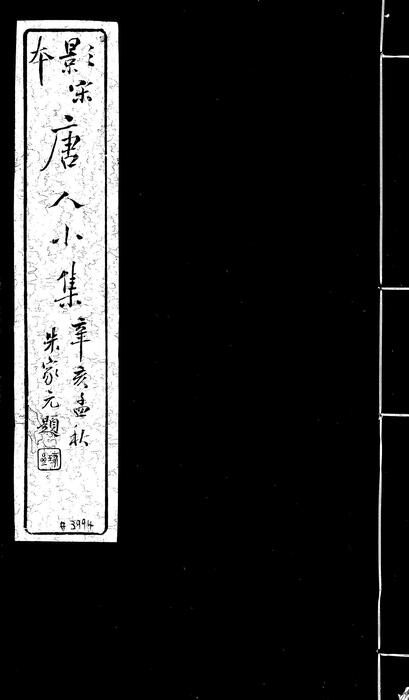 影宋本
唐人小集
辛亥孟秋
朱家元題
#3994